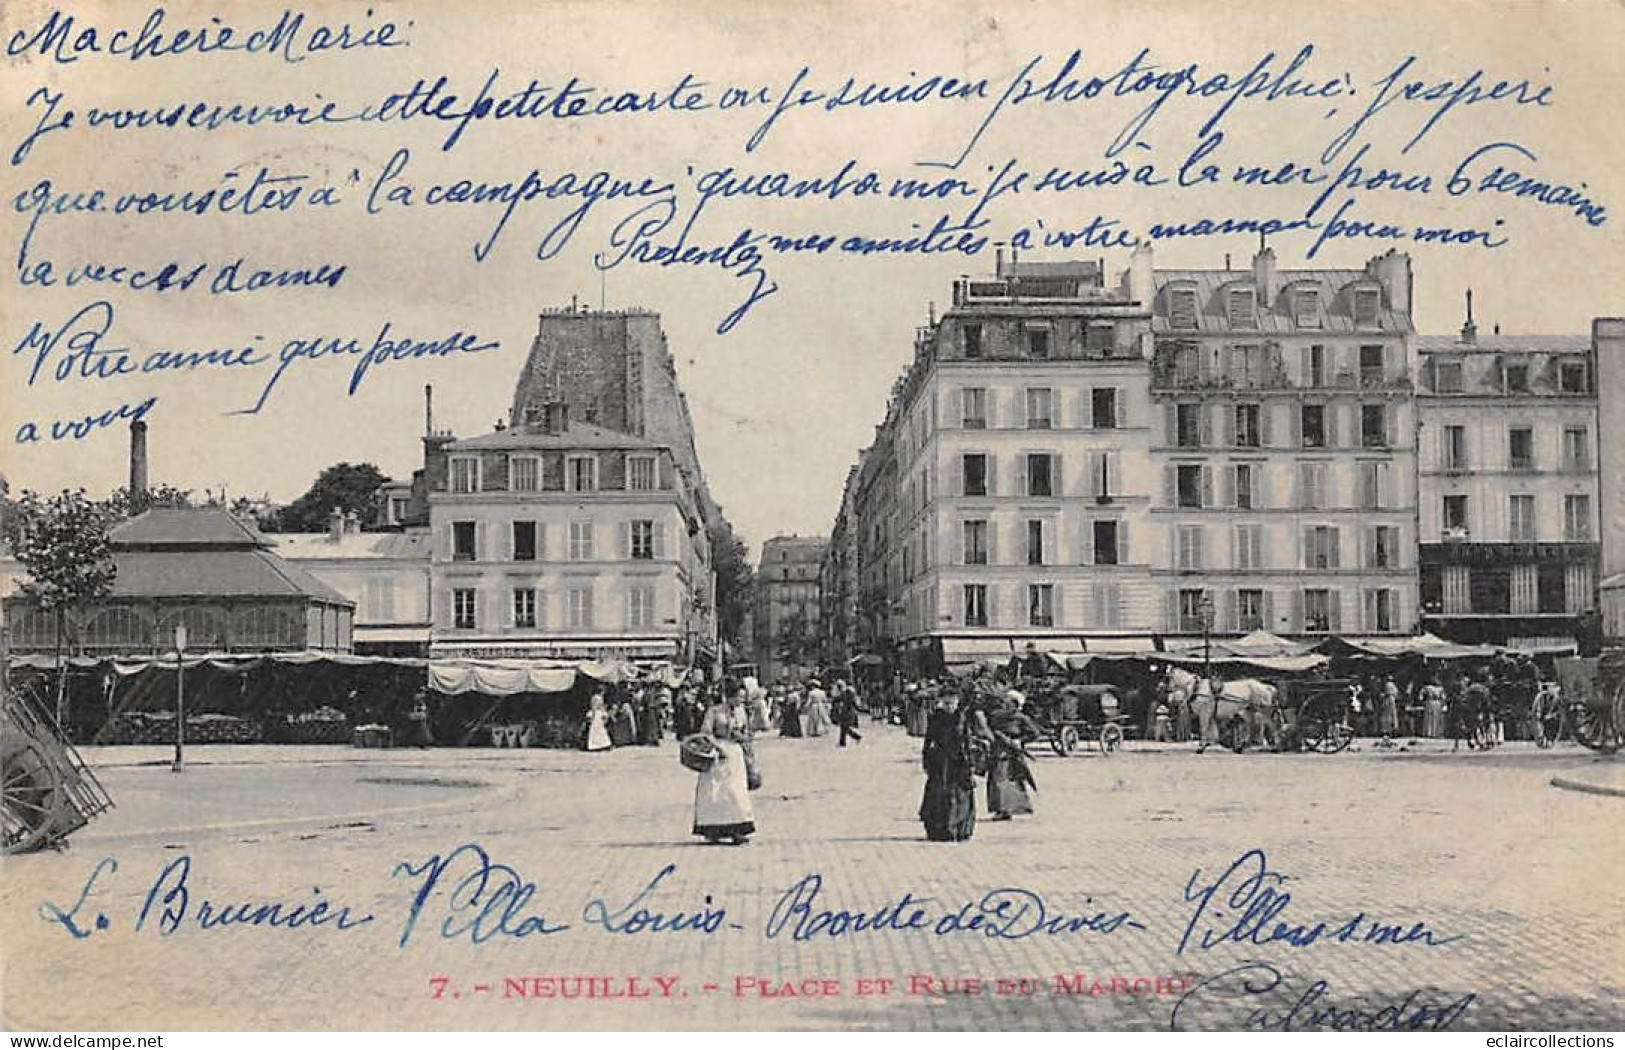 Ma chère Marie.
Je vous envoie cette petite carte ou je suis en photographie. J'espere
que vous êtes à la campagne; quant a moi je suis à la mer pour 6 semaines
avec ces dames
Presentez mes amitiés à votre maman pour moi
Votre amie qui pense
a vous
L. Brunier Villa Louis - Route de Dives -
Villers s mer
Calvados
7. - NEUILLY. - PLACE ET RUE DU MARCHÉ
eclaircollections